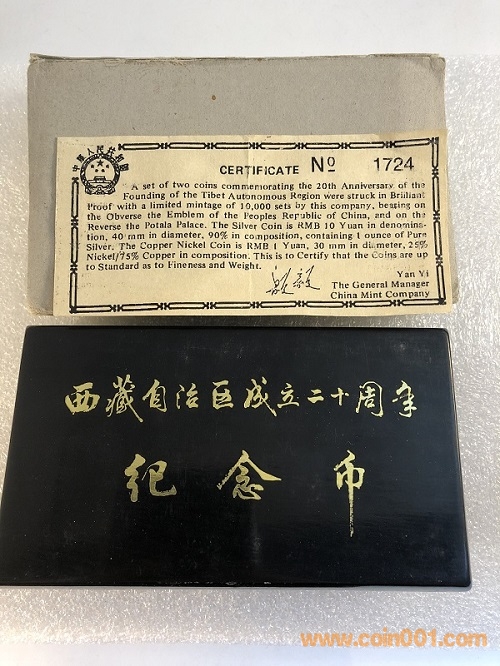 中华人民共和国
CERTIFICATE № 1724
A set of two coins commemorating the 20th Anniversary of the
Founding of the Tibet Autonomous Region were struck in Brilliant
Proof with a limited mintage of 10,000 sets by this company, bearing on
the Obverse the Emblem of the Peoples Republic of China, and on
the Reverse the Potala Palace. The Silver Coin is RMB 10 Yuan in denomina-
tion, 40 mm in diameter, 90% in composition, containing 1 ounce of Pure
Silver. The Copper Nickel Coin is RMB 1 Yuan, 30 mm in diameter, 25%
Nickel/75% Copper in composition. This is to Certify that the Coins are up
to Standard as to Fineness and Weight.
Yan Yi
The General Manager
China Mint Company
西藏自治区成立二十周年
纪念币
www.coin001.com